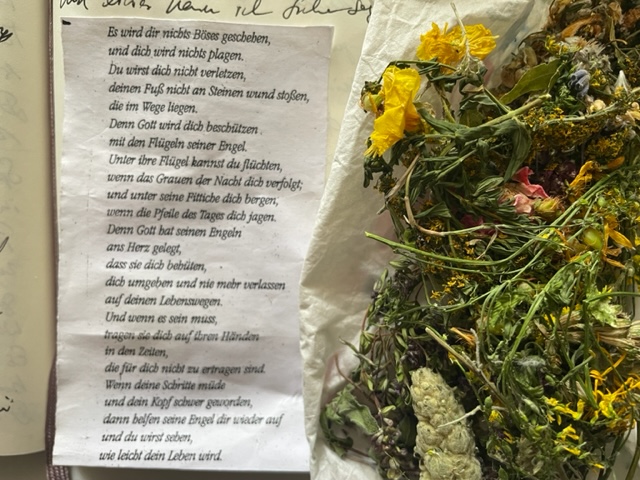 Es wird dir nichts Böses geschehen,
und dich wird nichts plagen.
Du wirst dich nicht verletzen,
deinen Fuß nicht an Steinen wund stoßen,
die im Wege liegen.
Denn Gott wird dich beschützen
mit den Flügeln seiner Engel.
Unter ihre Flügel kannst du flüchten,
wenn das Grauen der Nacht dich verfolgt;
und unter seine Fittiche dich bergen,
wenn die Pfeile des Tages dich jagen.
Denn Gott hat seinen Engeln
ans Herz gelegt,
dass sie dich behüten,
dich umgeben und nie mehr verlassen
auf deinen Lebenswegen.
Und wenn es sein muss,
tragen sie dich auf ihren Händen
in den Zeiten,
die für dich nicht zu ertragen sind.
Wenn deine Schritte müde
und dein Kopf schwer geworden,
dann helfen seine Engel dir wieder auf
und du wirst sehen,
wie leicht dein Leben wird.